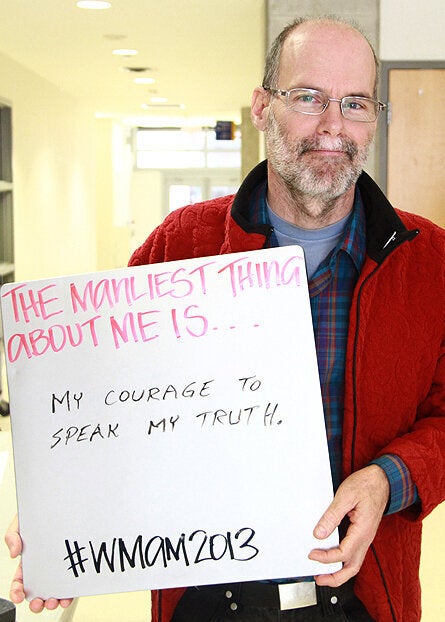 THE MANLIEST THING
ABOUT ME IS....
MY COURAGE TO
SPEAK MY TRUTH.
#WMAM2013